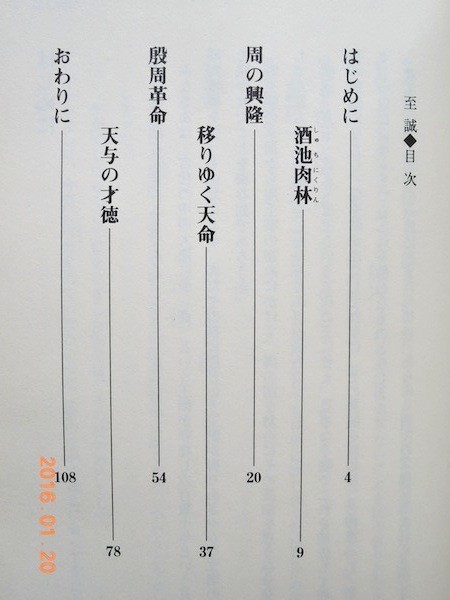 至誠◆目次
はじめに 4
酒池肉林 9
しゅちにくりん
周の興隆 20
移りゆく天命 37
殷周革命 54
天与の才徳 78
おわりに 108
2016.01.20